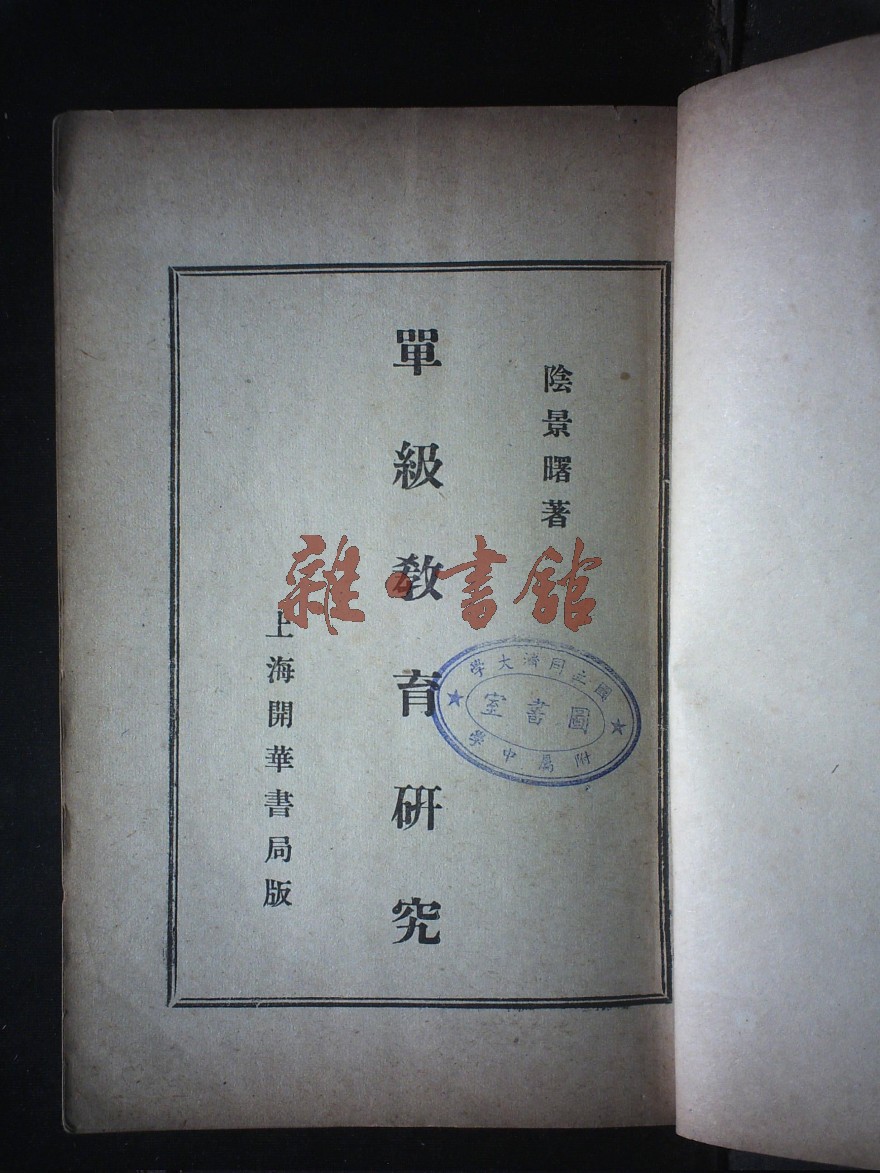 陰景曙著
單級敎育研究
上海開華書局版
雜·書館
國立同濟大學
圖書室
附屬中學